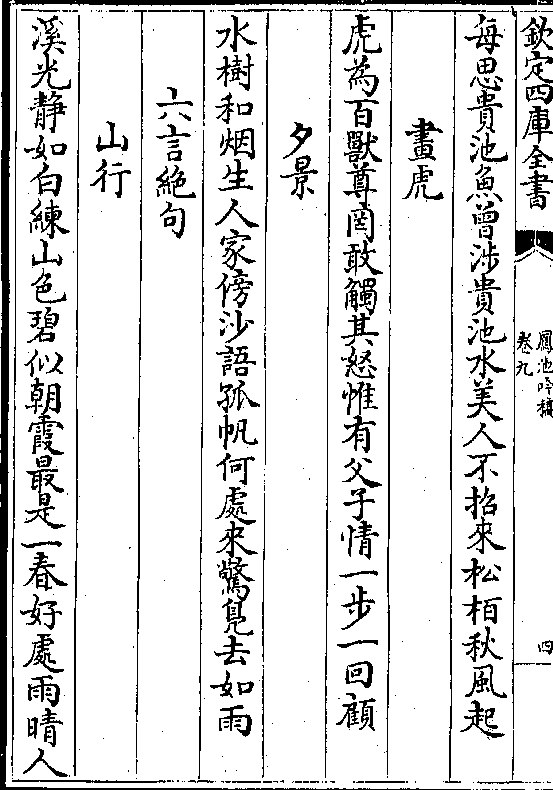 欽定四庫全書
鳳池吟稿
卷九
四
每思貴池魚曾涉貴池水美人不招來松栢秋風起
畫虎
虎為百獸尊罔敢觸其怒惟有父子情一步一回顧
夕景
水樹和烟生人家傍沙語孤帆何處來驚鳬去如雨
六言絶句
山行
溪光静如白練山色碧似朝霞最是一春好處雨晴人